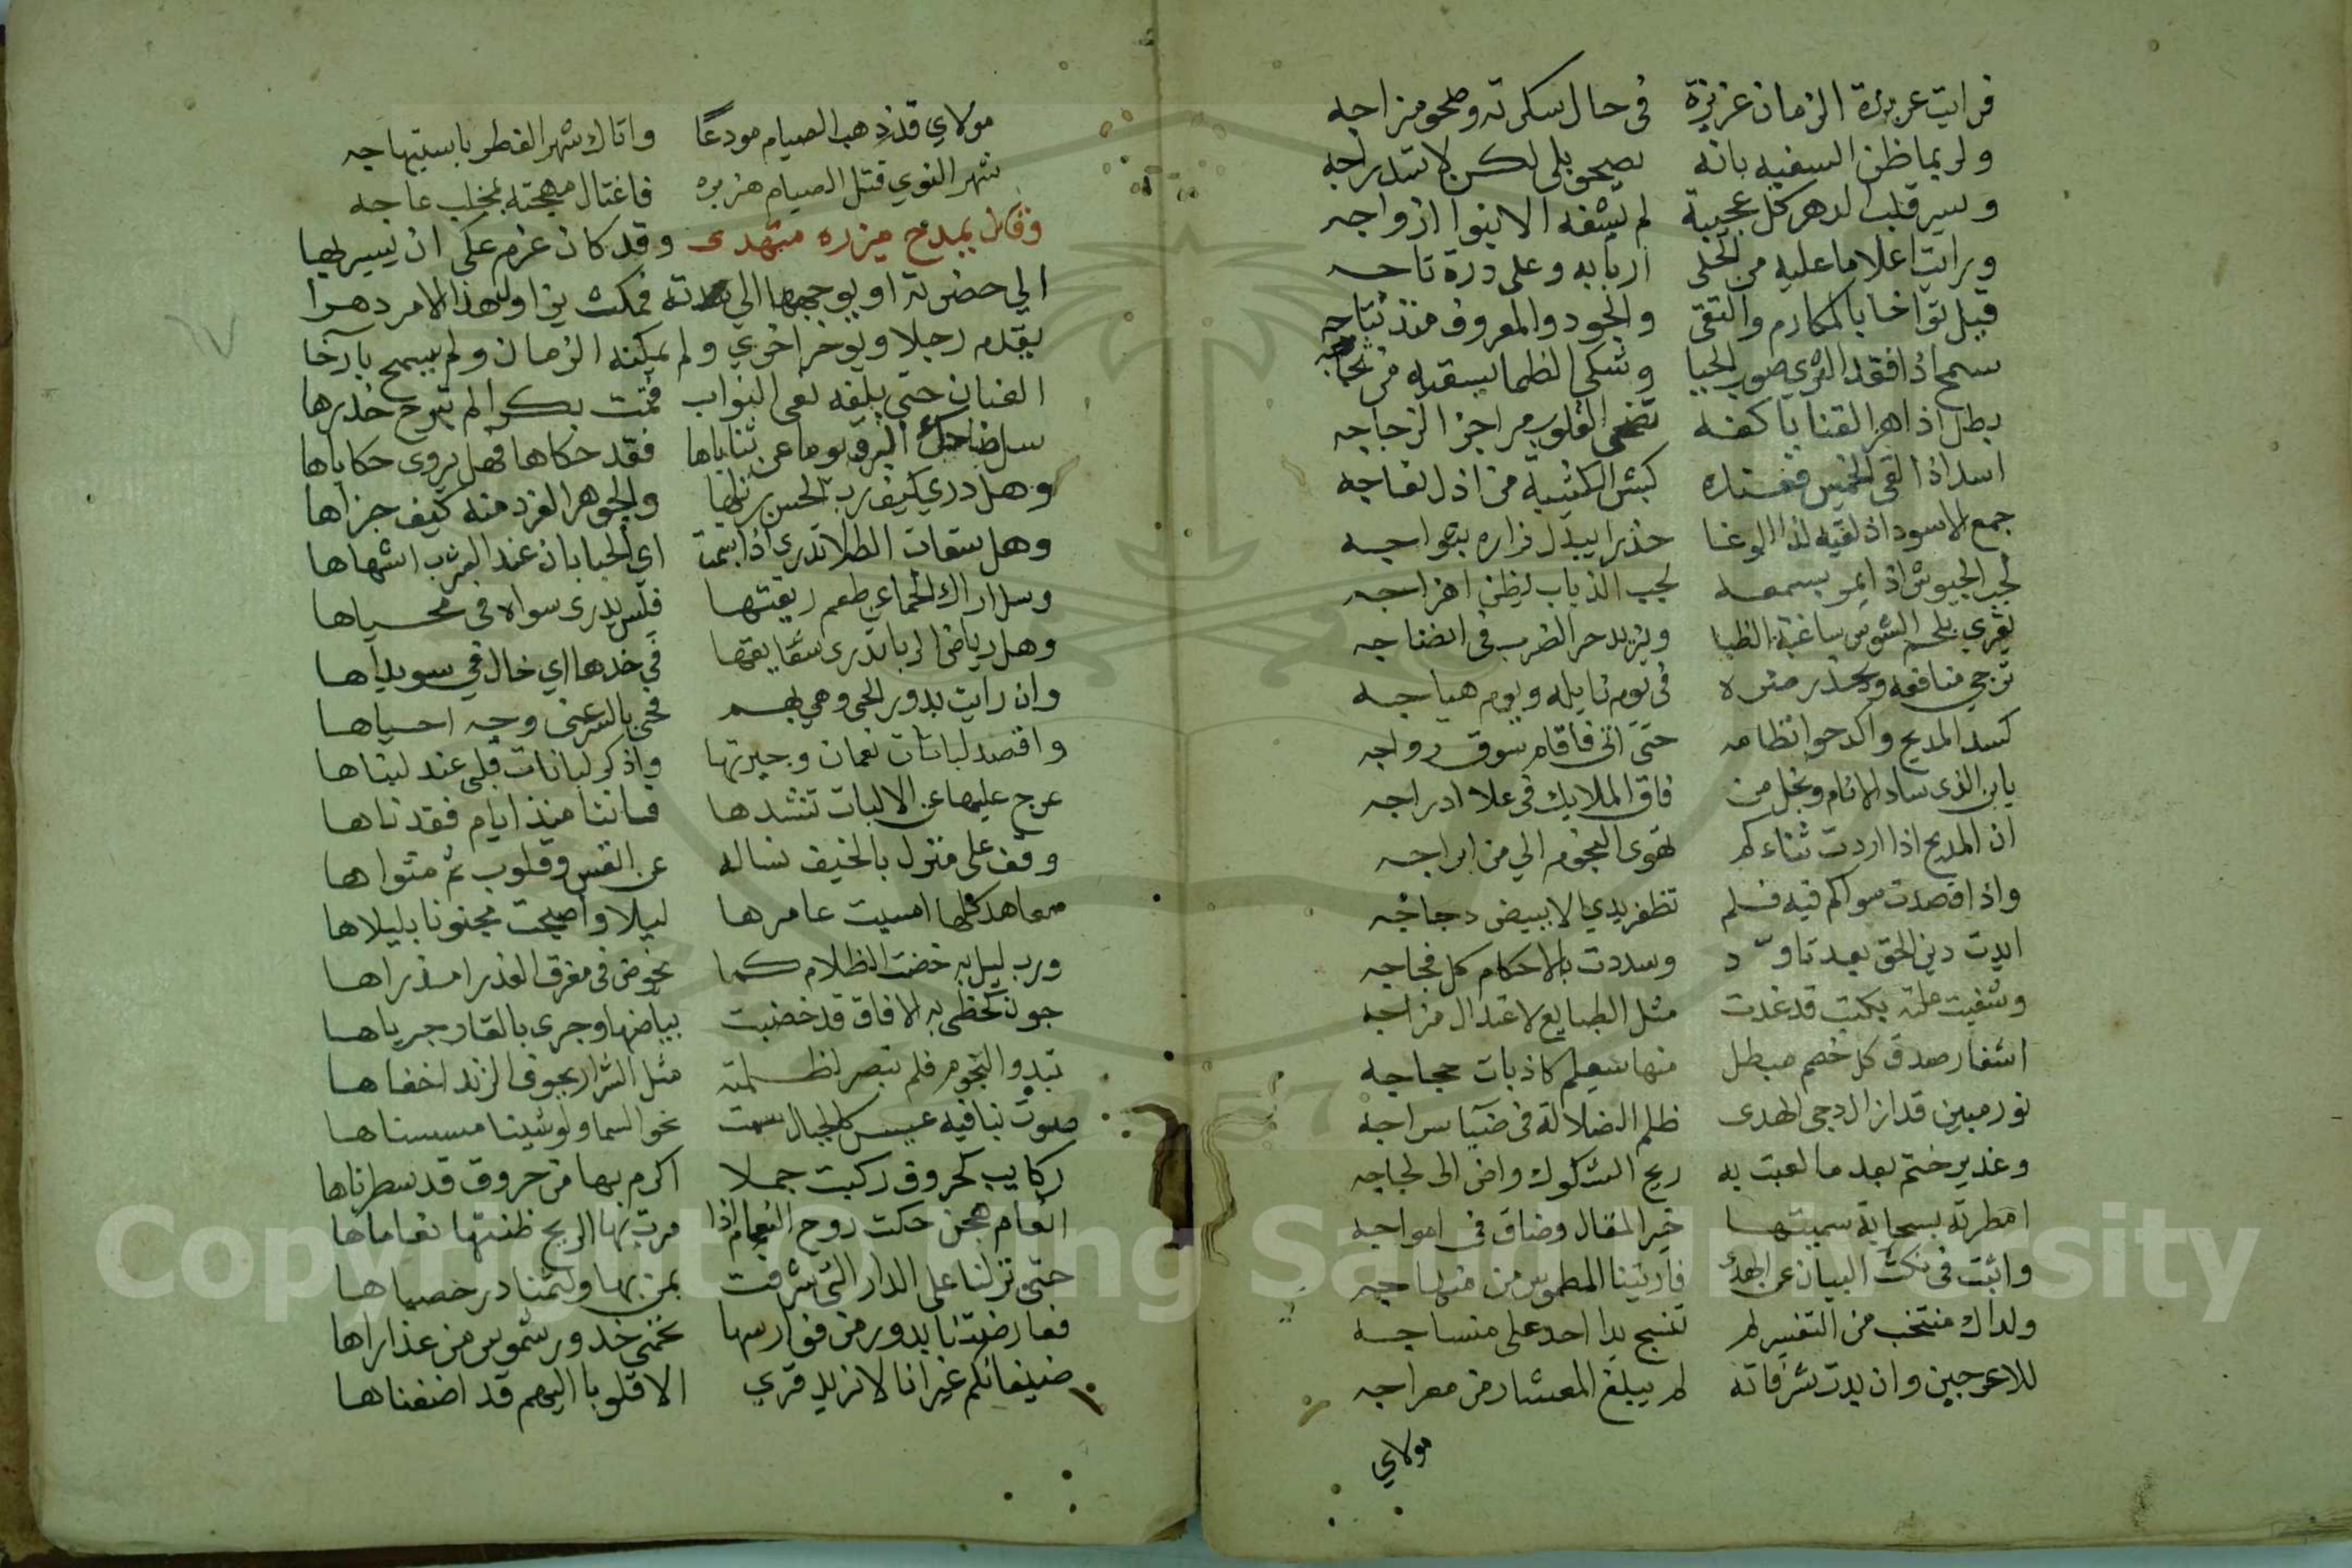 فرايت عربدة الزمان عزيزة في حال سكرته وصحو مزاجه
ولربما ظن السفيه بانه يصحو بلى لكن لاستدراجه
وسبر قلب الدهر كل عجيبة لم يشفه الا بنوا ازواجه
ورايت اعلاما عليه من الحلى اربابه وعلى درة تاجه
قيل توا خا بالمكارم والتقى والجود والمعروف منذ نتاجه
سمح اذا فقد الثرى صوب الحيا وشكى الظما يسقيه من ثجاجه
بطل اذا هز القنا باكفه تضحى القلوب مراجز الزجاجه
اسد اذا لقى الخميس فعنده كبش الكتيبة من اذل نعاجه
جمع الاسود اذ لقيه لذا الوغا حذرا يبدل زاره بثواجه
لجب الجيوش اذا يمر بسمعه لجب الذباب يظن اهزاجه
يقري بلحم الشوس ساغبة الظبا ويزيد حر الضرب في انضاجه
ترجى منافعه ويحذر ضره في يوم نايله ويوم هياجه
كسد المديح واكدحوا نظامه حتى اتى فاقام سوق رواجه
يابن الذي ساد الانام ونجل من فاق الملايك في علا ادراجه
ان المديح اذا اردت ثناءكم تهوى النجوم الي من ابراجه
واذا قصدت سواكم فيه فلم تظفر يدي الا ببيض دجاجه
ايدت دين الحق بعد تاود وسددت بالاحكام كل فجاجه
وشفيت ملته بكتب قد غدت مثل الطبايع لاعتدال مزاجه
اسفار صدق كل خصم مبطل منها سيعلم كاذبات حجاجه
نور مبين قد انار الدجى الهدى ظلم الضلالة في ضيآ سراجه
وغدير ختم بعد ما لعبت به ريح الشكوك واض الى لجاجه
امطرته بسحابة سميتها خير المقال وضاق في امواجه
واثبت في نكت البيان عن الهدى فاريتنا المطموس من منهاجه
ولداك منتخب من التفسير لم تنسج يدا احد على منساجه
للاعرجين وان بدت شرفاته لم يبلغ المعشار من معراجه
مولاي
مولاي قد ذهب الصيام مودعا واتاك شهر الفطر باستبهاجه
شهر النوي قتل الصيام هزبره فاغتال مهجته بمخلب عاجه
وقال يمدح ميرزه متهدى وقد كان عزم على ان يسير بها
الي حضرته او يوجهها الي فمكث يزاول هذا الامر دهرا
يقدم رجلا ويوخر اخري ولم يمكنه الزمان ولم يسمح بارخا
العنان حتى بلغه نعى النواب فتمت بكرا لم تبرح خدرها
سل ضاحك البرق يوما عن ثناياها فقد حكاها فهل يروى حكاياها
وهل دري كيف رب الحسن رتلها والجوهر الفرد منه كيف جزاها
وهل سقات الطلا تدري اذا بسمت اي الحبابان عند الشرب اشهاها
وسل اراك الحما عن طعم ريقتها فليس يدرى سواه في محياها
وهل رياض الربا تدرى شقايقها في خدها اي خال في سويداها
وان رايت بدور الحى وهي بهم فحى بالسر عنى وجه احياها
واقصد لبانات نعمان وجيرتها واذكر لبانات قلبى عند لبناها
عرج عليها عن الالباب تنشدها فاننا منذ ايام فقدناها
وقف على منزل بالخيف نساله عن انفس وقلوب ثم مثواها
معاهد كلما امسيت عامرها ليلا واصبحت مجنونا بليلاها
ورب ليل به خضت الظلام كما يخوض في مفرق العذرا مذراها
جون تخطى به الافاق قد خضبت بياضها وجرى بالقار جرياها
تبدو النجوم فلم تبصر لظلمته مثل الشرار بجوف الزند اخفاها
صوت بنا فيه عيس كالجبال سمت نحو السما ولو شينا مسسناها
ركايب كحروف ركبت جملا اكرم بها من حروف قد سطرناها
انعام هجن حكت روح النعام اذا مرت بها الريح ظنتها نعاماها
حتى نزلنا على الدار التي شرفت بمن بها ولثمنا در حصباها
فعارضتنا بدور من فوارسها تحمى خدور شموس من عذاراها
ضيفانكم غير انا لا نريد قري الا قلوبا اليهم قد اضفناها
Copyright © King Saud University
1957